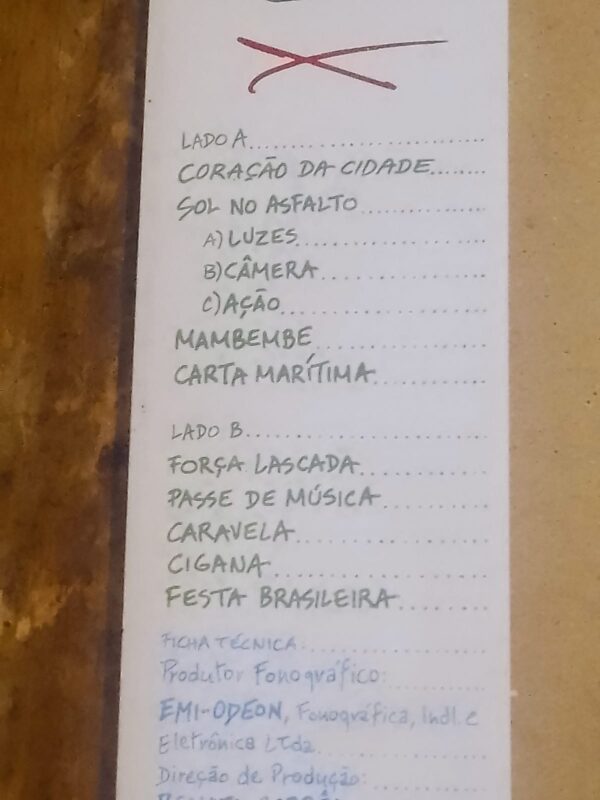 LADO A
CORAÇÃO DA CIDADE
SOL NO ASFALTO
A) LUZES
B) CÂMERA
C) AÇÃO
MAMBEMBE
CARTA MARÍTIMA
LADO B
FORÇA LASCADA
PASSE DE MÚSICA
CARAVELA
CIGANA
FESTA BRASILEIRA
FICHA TÉCNICA:
Produtor Fonográfico:
EMI-ODEON, Fonográfica, Indl. e
Eletrônica LTda.
Direção de Produção: